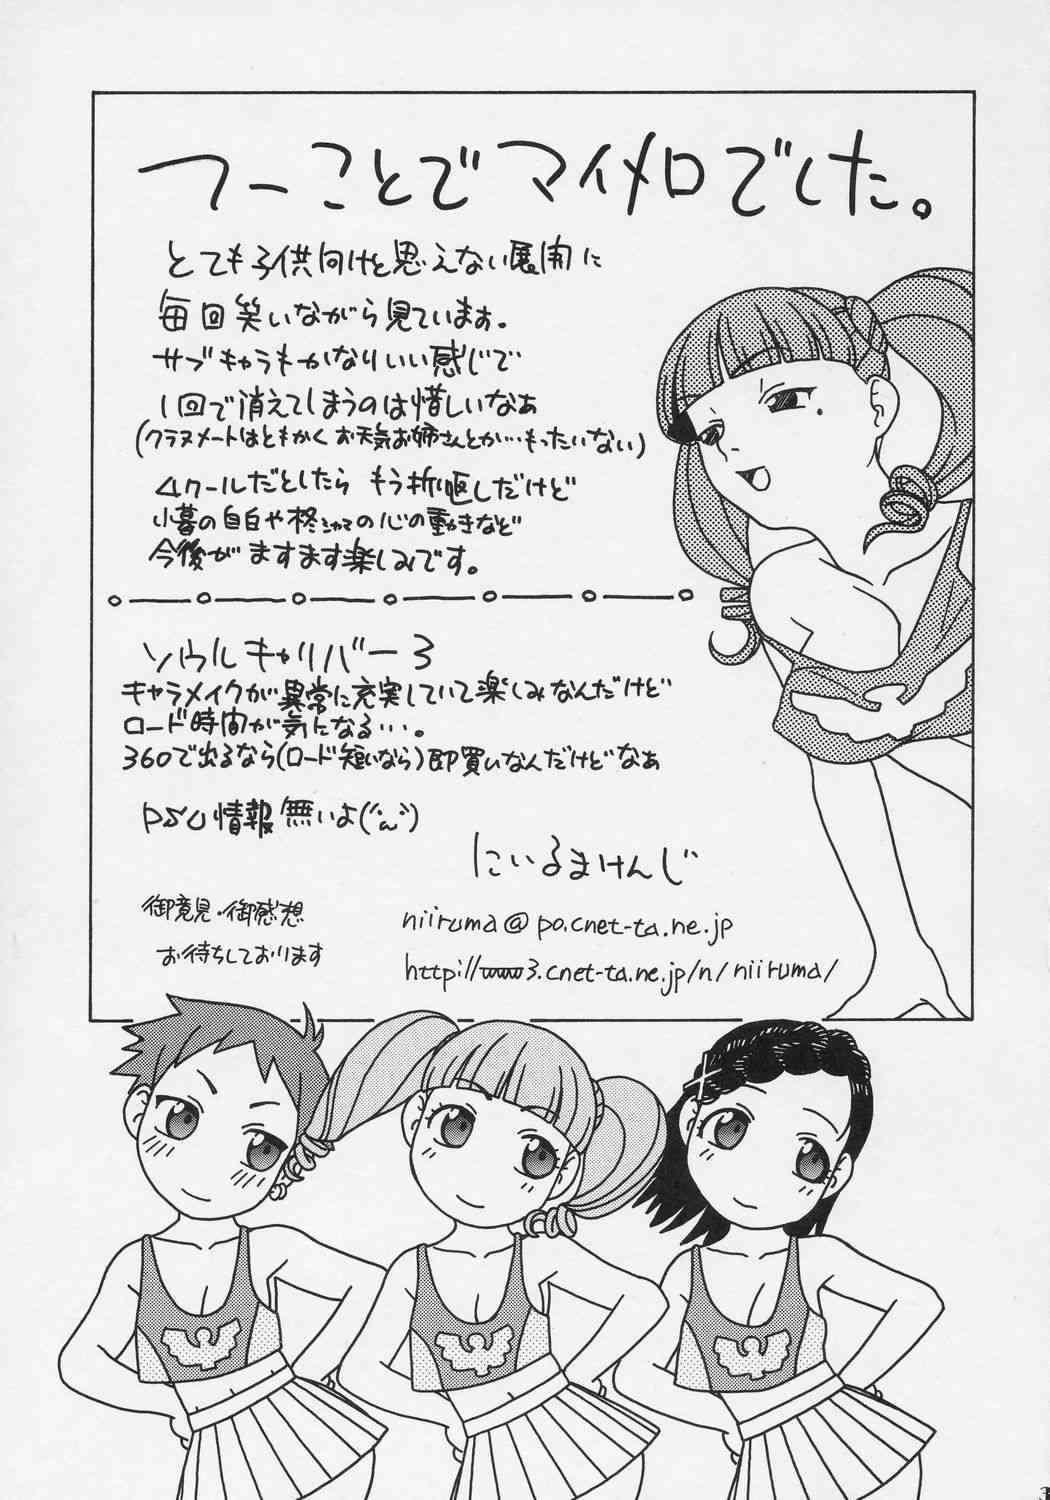 つーことでマイメロでした。
とても子供向けと思えない展開に
毎回笑いながら見ています。
サブキャラもかなりいい感じで
1回で消えてしまうのは惜しいなあ
(クラスメートはともかく お天気お姉さんとか…もったいない)
4クールだとしたら もう折り返しだけど
小暮の自白や柊の心の動きなど
今後がますます楽しみです。
ソウルキャリバー3
キャラメイクが異常に充実していて楽しみなんだけど
ロード時間が気になる…。
360で出るなら(ロード短いなら)即買いなんだけどなぁ
PSU情報無いよ(´д`)
にいるまけんじ
御意見・御感想
niiruma@po.cnet-ta.ne.jp
お待ちしております
http://www3.cnet-ta.ne.jp/n/niiruma/
3